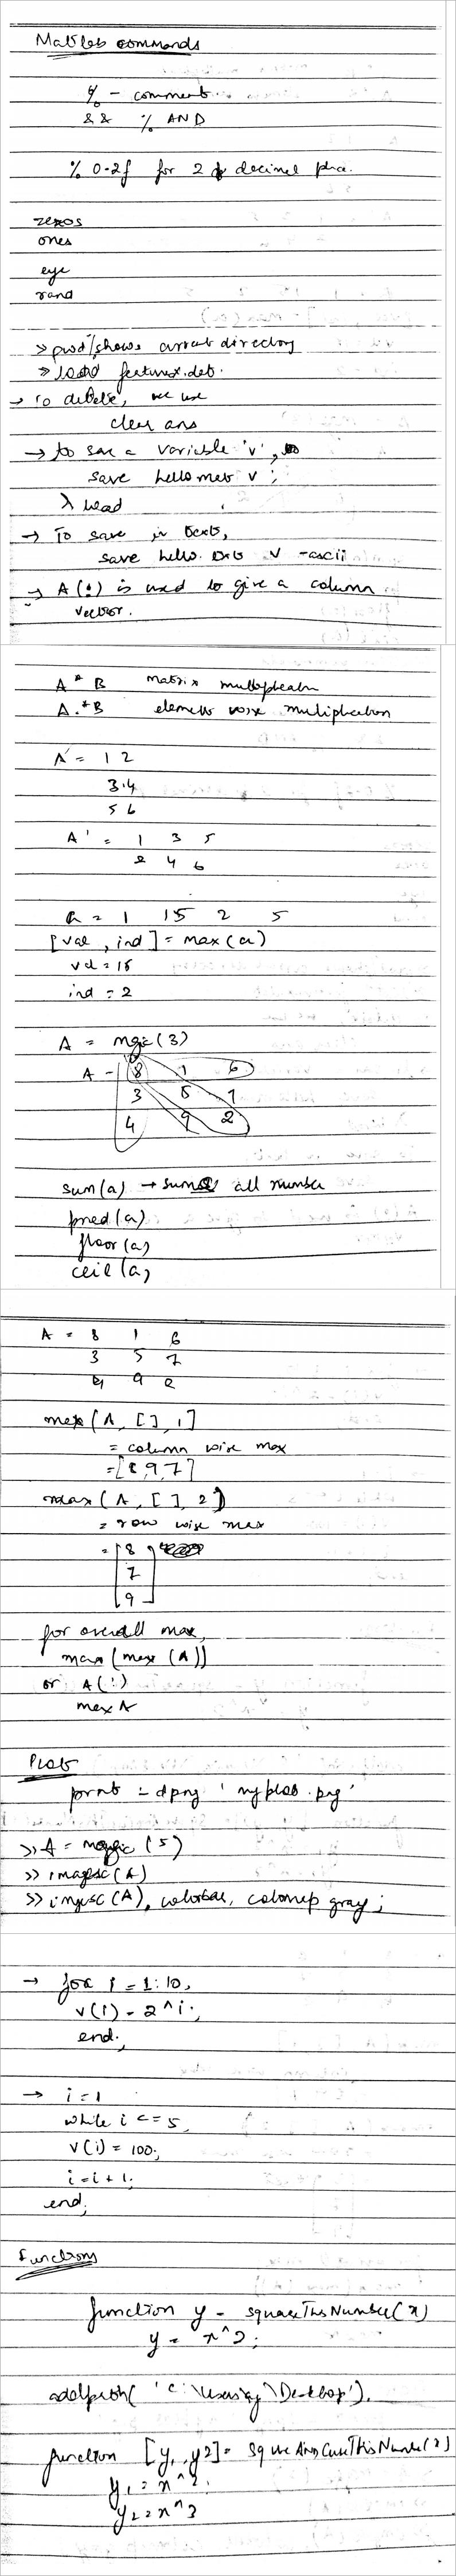 Matlab commands
% - comment
&& % AND
% 0.2f for 2 decimel place.
zeros
ones
eye
rand
>> pwd/shows current directory
>> load featuresx.dat.
→ To delete, we use
clear ans
→ to save a variable 'v',
save hello mat v ;
load
→ To save in text,
save hello. txt v -ascii
→ A(:) is used to give a column
vector.
A * B matrix multiplication
A.*B element wise multiplication
A = 1 2
3 4
5 6
A' = 1 3 5
2 4 6
a = 1 15 2 5
[val , ind] = max(a)
val = 15
ind = 2
A = magic(3)
A = 8 1 6
3 5 7
4 9 2
sum(a) → sums all number
prod(a)
floor(a)
ceil(a)
A = 8 1 6
3 5 7
4 9 2
max(A, [], 1]
= column wise max
= [8, 9, 7]
max(A, [], 2)
= row wise max
= 8
7
9
for overall max,
max(max (A))
or A(:)
max A
Plot
print -dpng 'myplot.png'
>> A = magic (5)
>> imagesc(A)
>> imagesc(A), colorbar, colormap gray;
→ for i = 1:10,
v(i) = 2^i;
end;
→ i = 1
while i <= 5,
v(i) = 100;
i = i + 1;
end;
Functions
function y = squareThisNumber(x)
y = x^2;
addpath( 'C:\Users\ \Desktop').
function [y1, y2] = SquareAndCubeThisNumber(x)
y1 = x^2;
y2 = x^3